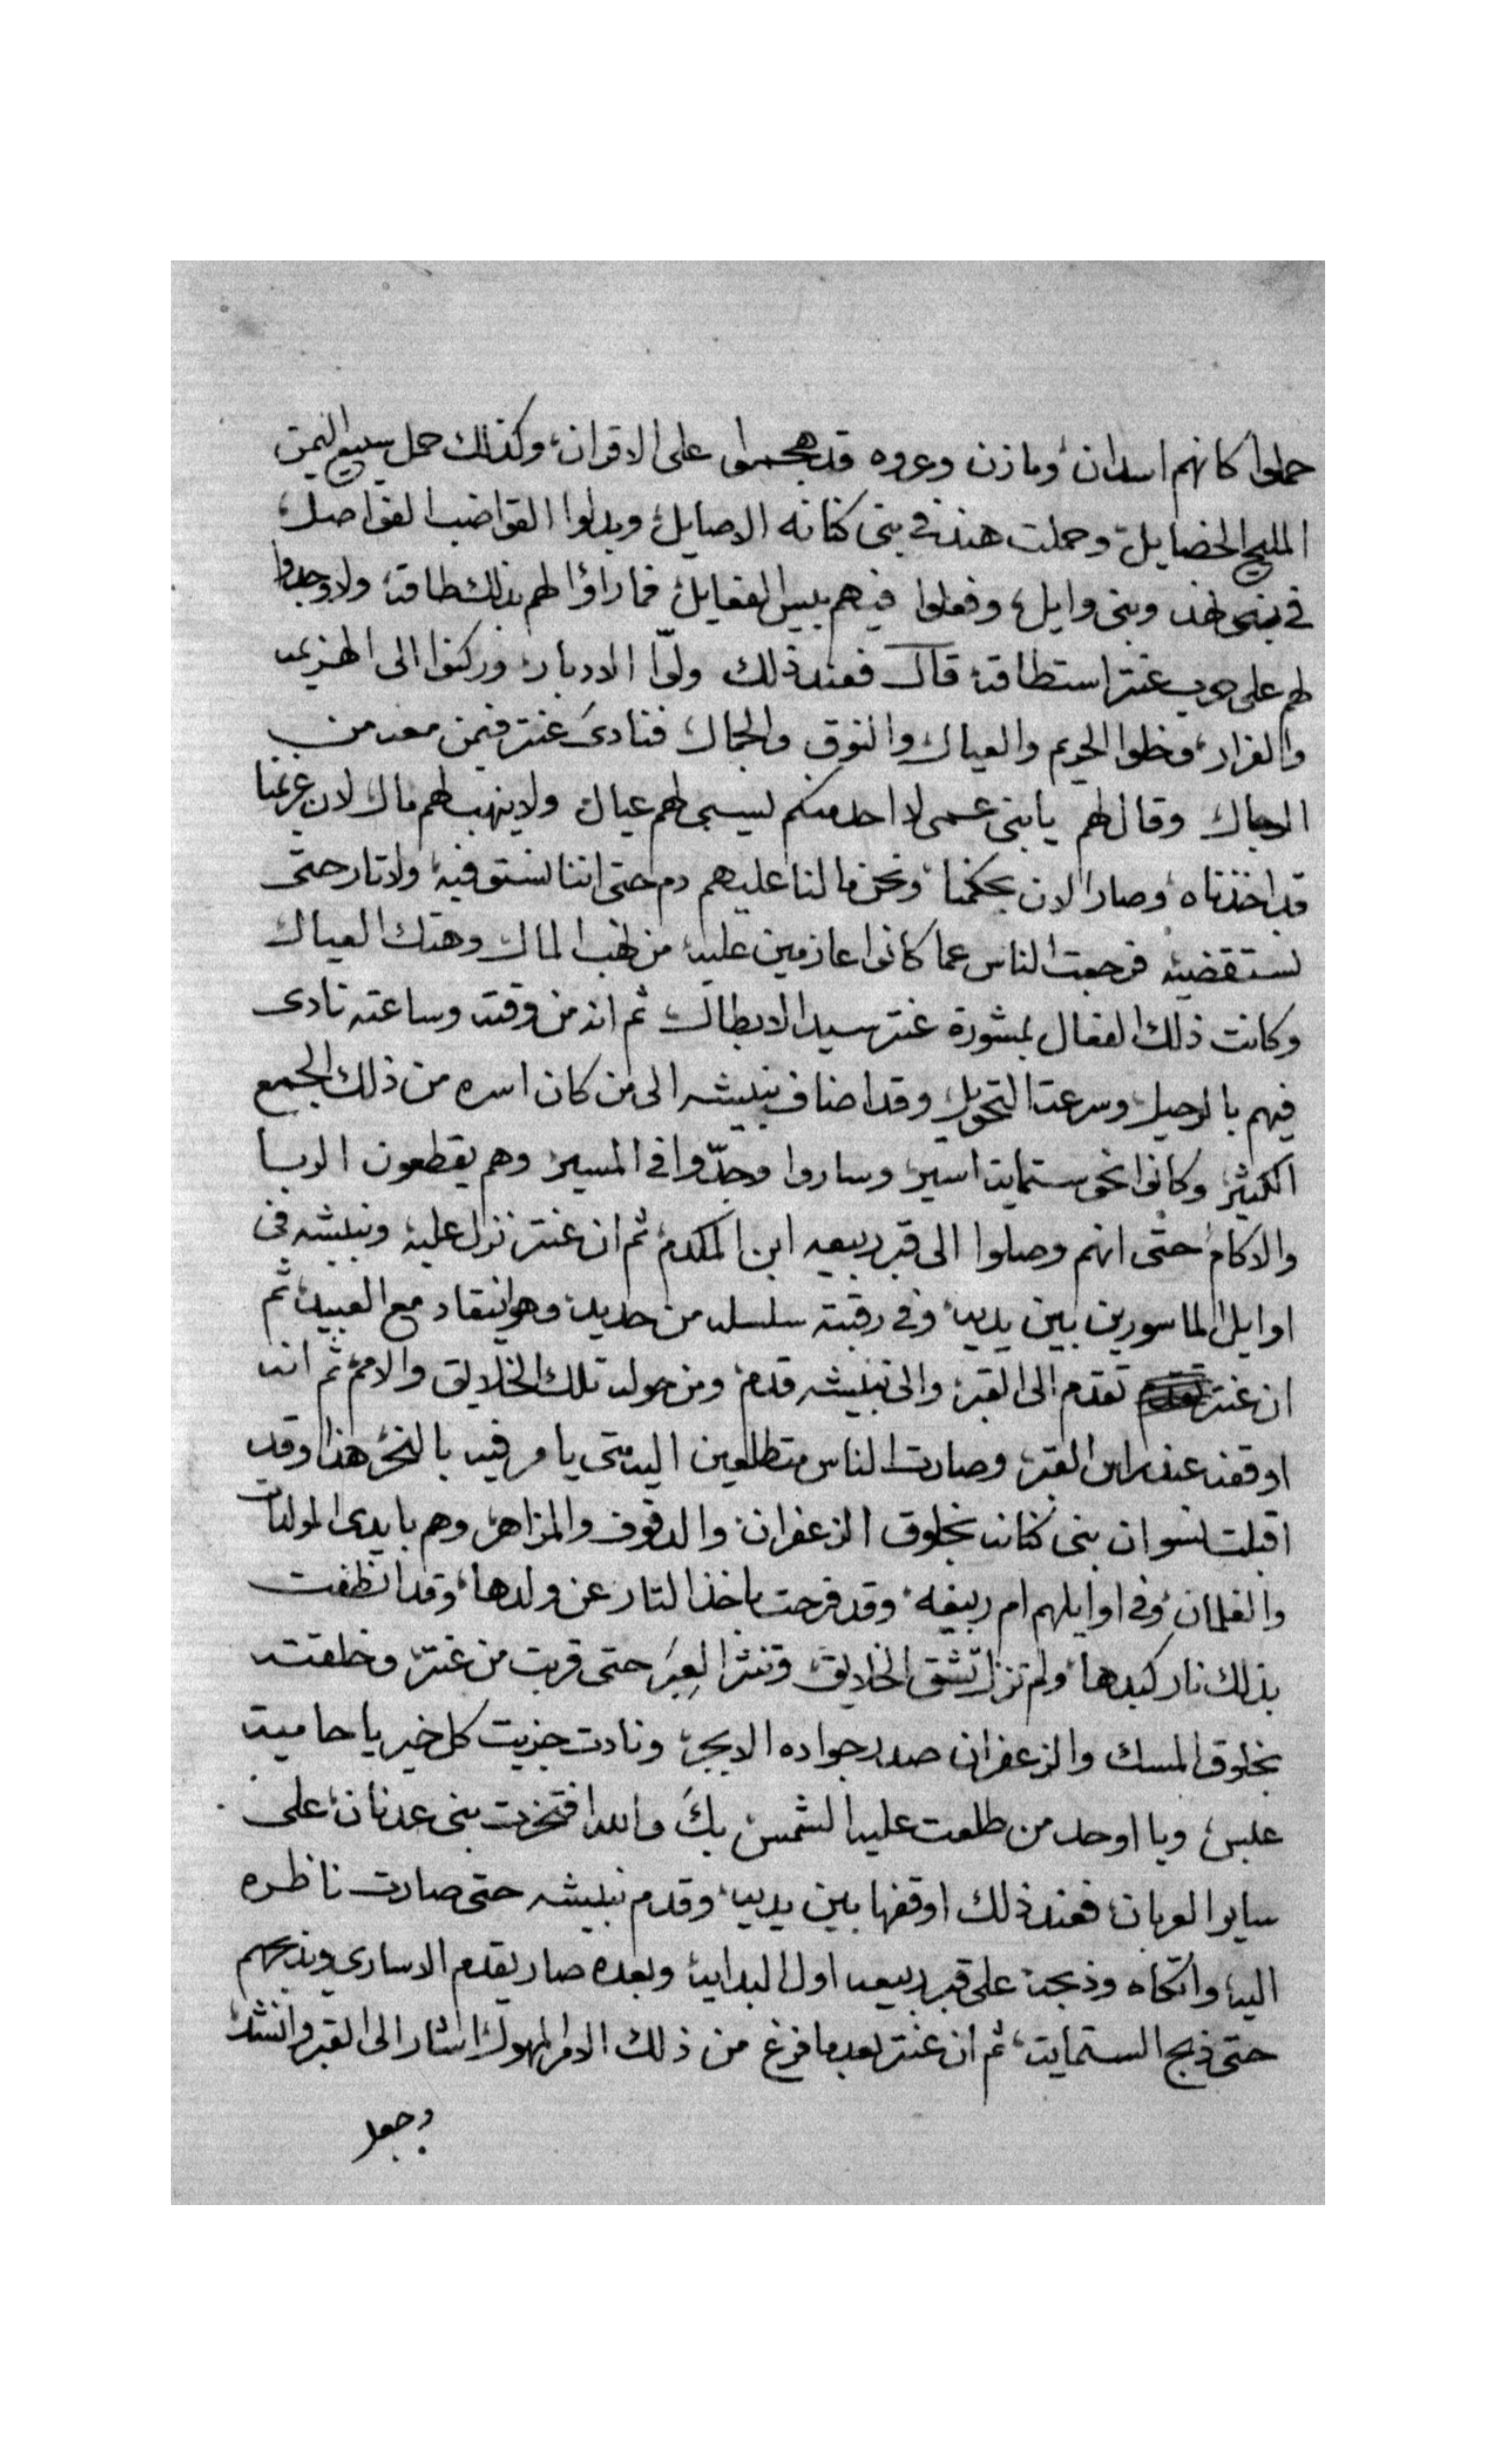 حملوا كانهم اسدان، ومازن وعروه قد هجموا على الاقران، وكذلك حمل سبيع اليمن
المليح الخضايل، وحملت هند في بنى كنانه الاصايل، وبدلوا القواضب الفواصل،
في بنى نهد وبنى وايل، وفعلوا فيهم بيس الفعايل، فما راؤا لهم بذلك طاقة، ولا وجدوا
لهم على حرب عنتر استطاقة، قال فعند ذلك ولّا الادبار، وركنوا الى الهزيمه
والفرار، وخلوا الحريم والعيال والنوق والجمال، فنادى عنتر فيمن معه من
الرجال وقال لهم يابنى عمى لا احد منكم ليسبى لهم عيال، ولا ينهب لهم مال لان غريمنا
قد اخذناه، وصار الان بحكمنا، ونحن ما لنا عليهم دم حتى اننا نستوفيه، ولا تار حتى
نستقضيه فرجعت الناس عما كانوا عازمين عليه، من نهب المال وهتك العيال
وكانت ذلك الفعال بمشورة عنتر سيد الابطال، ثم انه من وقته وساعته نادى
فيهم بالرحيل، وسرعة التحويل، وقد اضاف نبيشه الى من كان اسره من ذلك الجمع
الكثير، وكانوا نحو ستماية اسير، وساروا وجدّوا في المسير، وهم يقطعون الربا
والاكام، حتى انهم وصلوا الى قبر ربيعه ابن المكدم، ثم ان عنتر نزل عليه، ونبيشه فى
اوايل الماسورين بين يديه، وفى رقبته سلسله من حديد، وهو اينقاد مع العبيد، ثم
ان عنتر تقدم الى القبر، والى نبيشه قدم، ومن حوله تلك الخلايق والامم، ثم انه
اوقفه عند راس القبر، وصارت الناس متطلعين اليه متى يامر فيه بالنحر، هذا وقد
اقبلت نسوان بنى كنانه بخلوق الزعفران، والدفوف والمزاهر، وهم بايدى المولدات
والغلمان، وفى اوايلهم ام ربيعه، وقد فرحت باخذ التار عن ولدها، وقد انطفت
بذلك نار كبدها، ولم تزل تشق الخلايق، وتنثر العِبَر حتى قربت من عنتر، وخلقت
بخلوق المسك والزعفران صدر جواده الابجر، ونادت جزيت كل خير يا حامية
عبس، ويا اوحد من طلعت عليه الشمس، بكَ والله افتخرت بنى عدنان، على
ساير العربان، فعند ذلك اوقفها بين يديه، وقدم نبيشه حتى صارت ناظره
اليه، واتكاه وذبحه على قبر ربيعه اول البدايه، وبعده صار يقدم الاسارى ويذبحهم
حتى ذبح الستماية، ثم ان عنتر بعد ما فرغ من ذلك الامر المهول، اشار الى القبر وانشد
وجعل